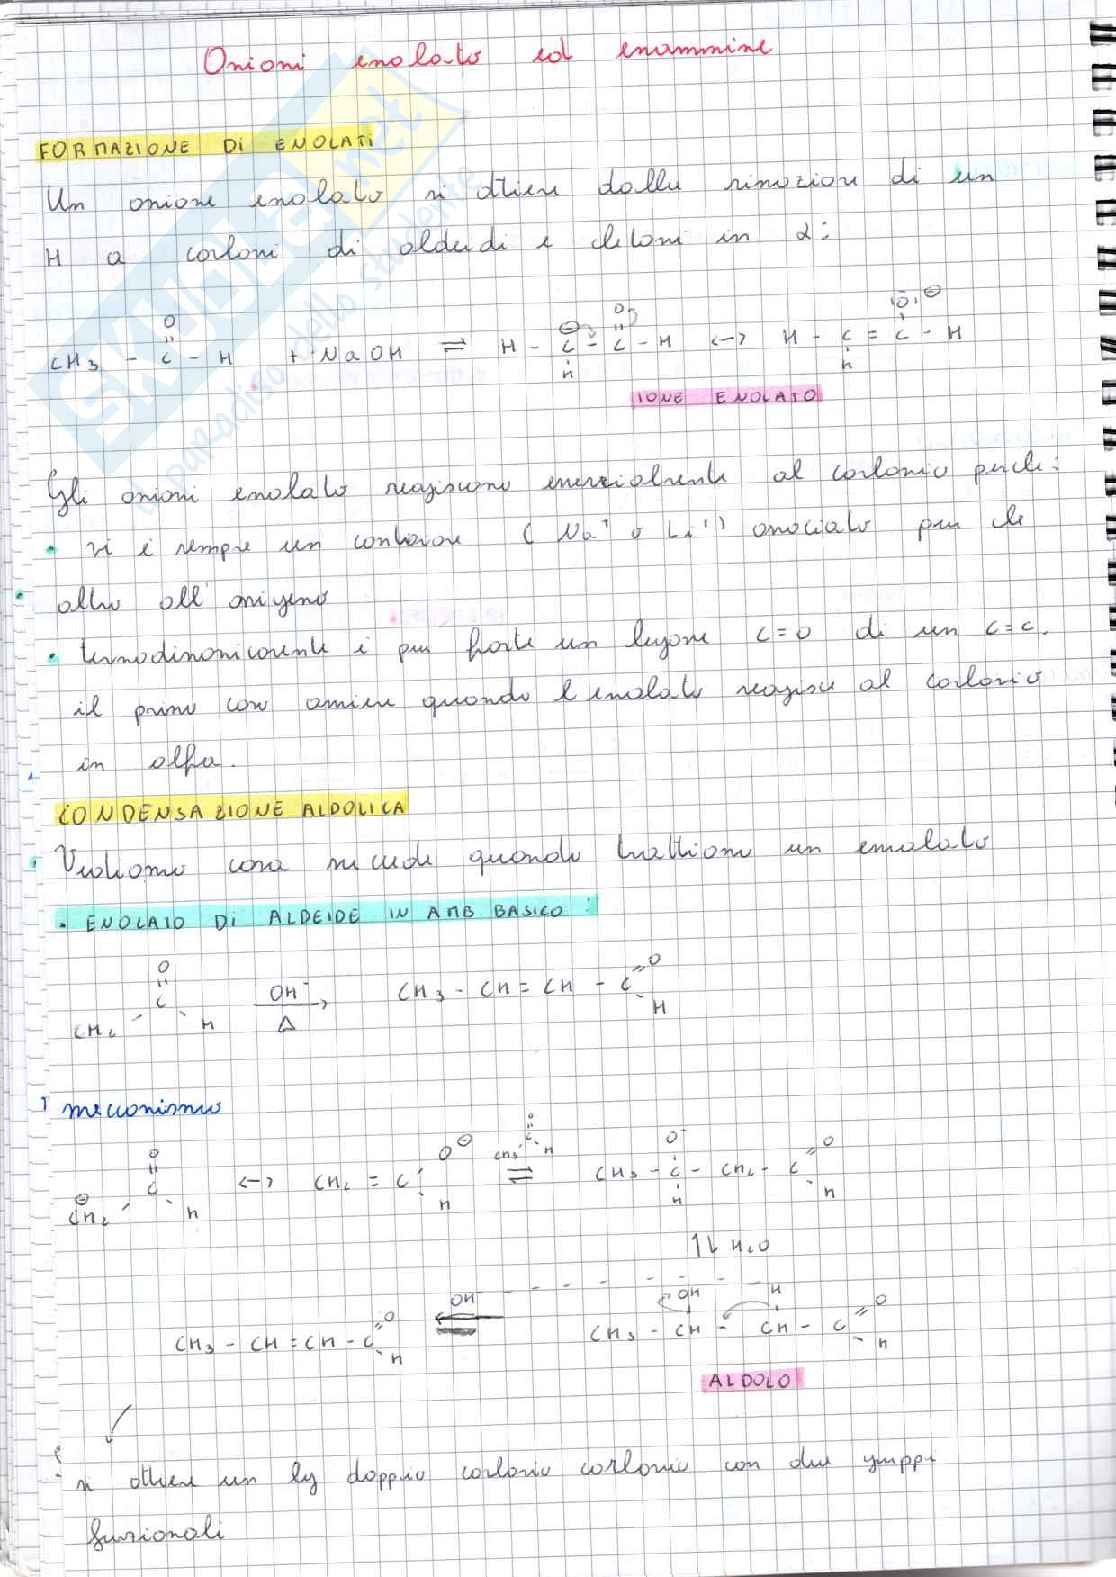 Anioni enolato ed enammine
FORMAZIONE Di ENOLATI
Un anione enolato si ottiene dalla rimozione di un
H a carboni di aldeidi e chetoni in α:
CH3 - C(=O) - H + NaOH ⇌ H - C⊖(H) - C(=O) - H <-> H - C(H) = C(O⊖) - H
IONE ENOLATO
Gli anioni enolato reagiscono essenzialmente al carbonio perche:
• vi è sempre un controione (Na⁺ o Li⁺) associato piu che
altro all'ossigeno
• termodinamicamente è piu forte un legame C=O di un C=C.
il primo caso avviene quando l'enolato reagisce al carbonio
in alfa.
CONDENSAZIONE ALDOLICA
Vediamo cosa succede quando trattiamo un enolato
• ENOLATO Di ALDEIDE IN AMB BASICO:
O
CH3 C H OH⁻ Δ → CH3 - CH = CH - C =O H
meccanismo
⊖CH2 C(=O) H <-> CH2 = C O⊖ H CH3 C(=O) H ⇌ CH3 - C(O⁻)(H) - CH2 - C =O H
⇅ H2O
CH3 - CH = CH - C =O H OH⁻ ← CH3 - CH(OH) - CH(H) - C =O H
ALDOLO
si ottiene un leg doppio carbonio carbonio con due gruppi
funzionali
skuola.net
il paradiso dello studente